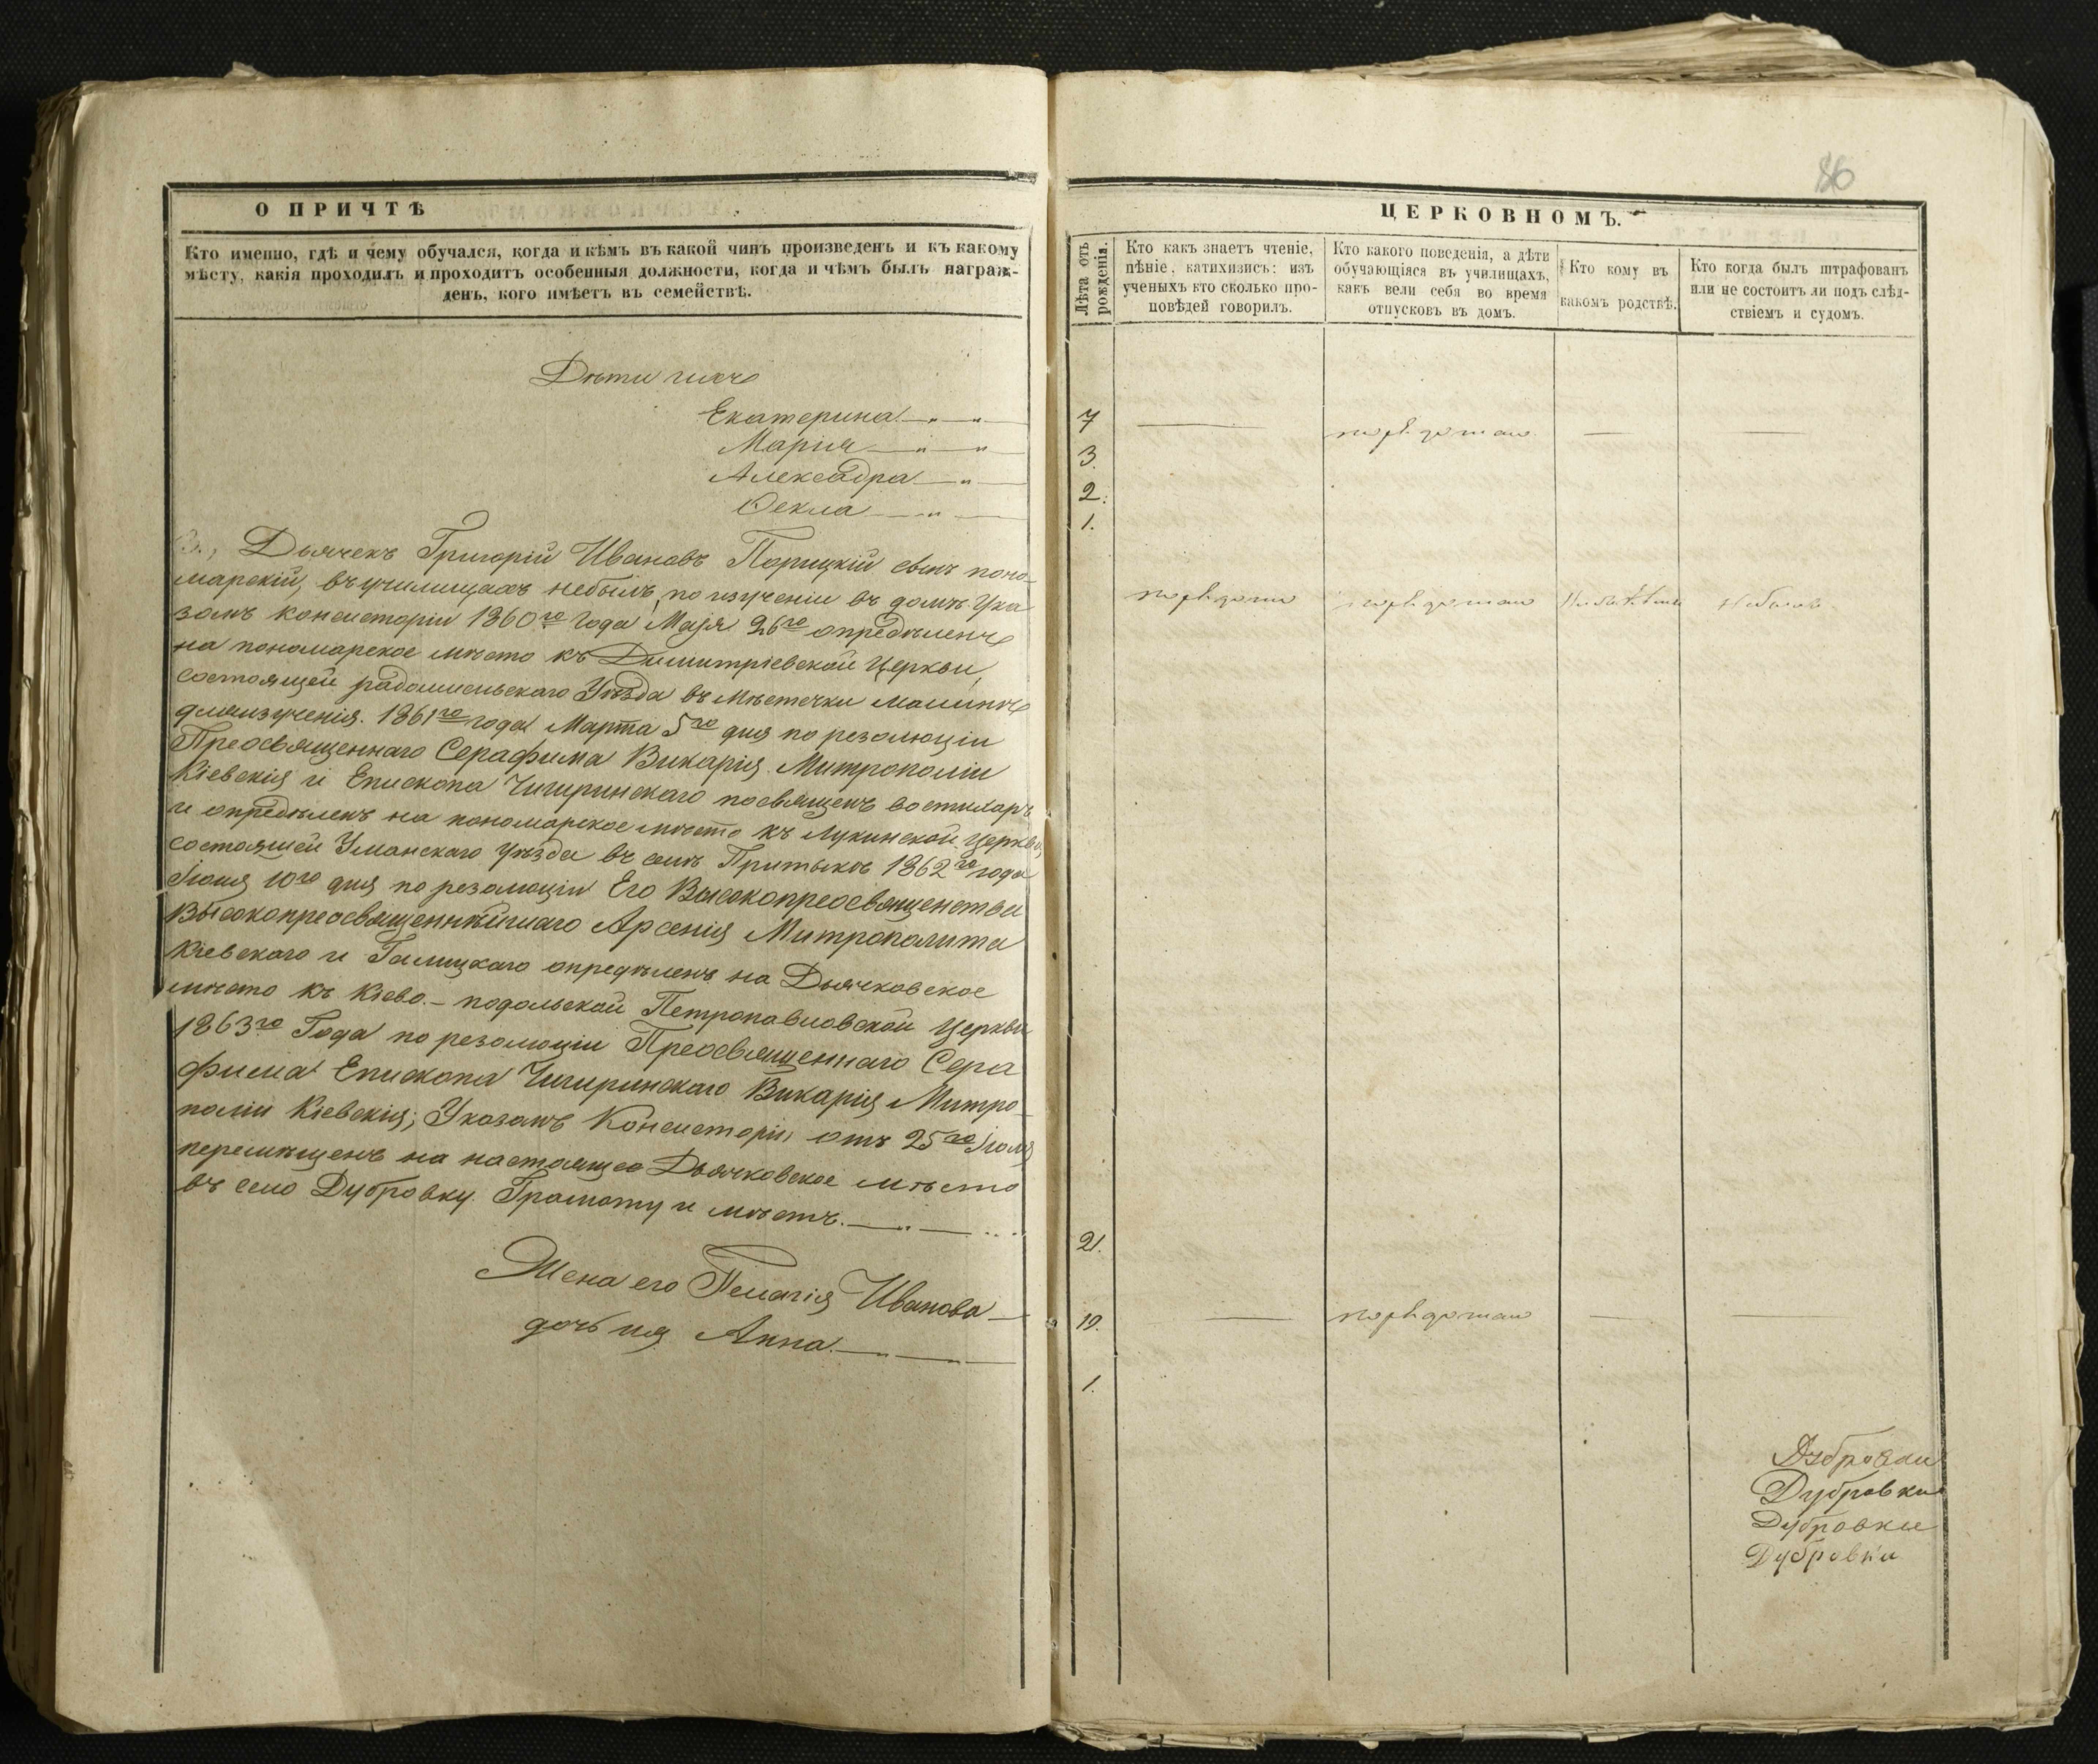 О ПРИЧТѢ
Кто именно, гдѣ и чему обучался, когда и кѣмъ въ какой чинъ произведенъ и къ какому
мѣсту, какія проходилъ и проходитъ особенныя должности, когда и чѣмъ былъ награж-
денъ, кого имѣетъ въ семействѣ.
Дѣти ихъ
Екатерина
Марія
Алексадра
Ѳекла
3., Дьячекъ Григорій Ивановъ Порицкій сынъ поно-
марскій, въ училищахъ небылъ, по изученіи въ домѣ Ука
зомъ консисторіи 1860го Года Маія 26го опредѣленъ
на пономарское мѣсто къ Димитріевской Церкви,
состоящей радомисльскаго Уѣзда въ мѣстечки малинѣ
дляизученія. 1861го года Марта 5го дня по резолюціи
Преосвященнаго Серафима Викарія Митрополіи
Кіевскія и Епископа Чигиринскаго посвященъ востихарь
и опредѣленъ на пономарское мѣсто къ Лукинской Церкви,
состоящей Уманскаго Уѣзда въ селѣ Притыкѣ 1862го года
Іюня 10го дня по резолюціи Его Высокопреосвященства
Высокопреосвященнѣйшаго Арсенія Митрополита
Кіевскаго и Галицкаго опредѣленъ на Дьячковское
мѣсто къ Кіево-подольской Петропавловской Церкви
1863го Года по резолюціи Преосвященнаго Сера
фима Епископа Чигиринскаго Викарія Митро-
поліи Кіевскія; Указомъ Консисторіи отъ 25го Іюля
перемѣщенъ на настоящее Дьячковское мѣсто
въ село Дубровку. Грамоту имѣетъ.
Жена его Пелагія Иванова
дочь ия Анна
86
ЦЕРКОВНОМЪ.
Лѣта отъ рожденія.
Кто какъ знаетъ чтеніе,
пѣніе, катихизисъ: изъ
ученыхъ кто сколько про-
повѣдей говорилъ.
Кто какого поведенія, а дѣти
обучающіяся въ училищахъ,
какъ вели себя во время
отпусковъ въ домъ.
Кто кому въ
какомъ родствѣ.
Кто когда былъ штрафованъ
или не состоитъ ли подъ слѣд-
ствіемъ и судомъ.
7
3.
2.
1.
21.
19.
1.
Дубровки
Дубровки
Дубровки
Дубровки